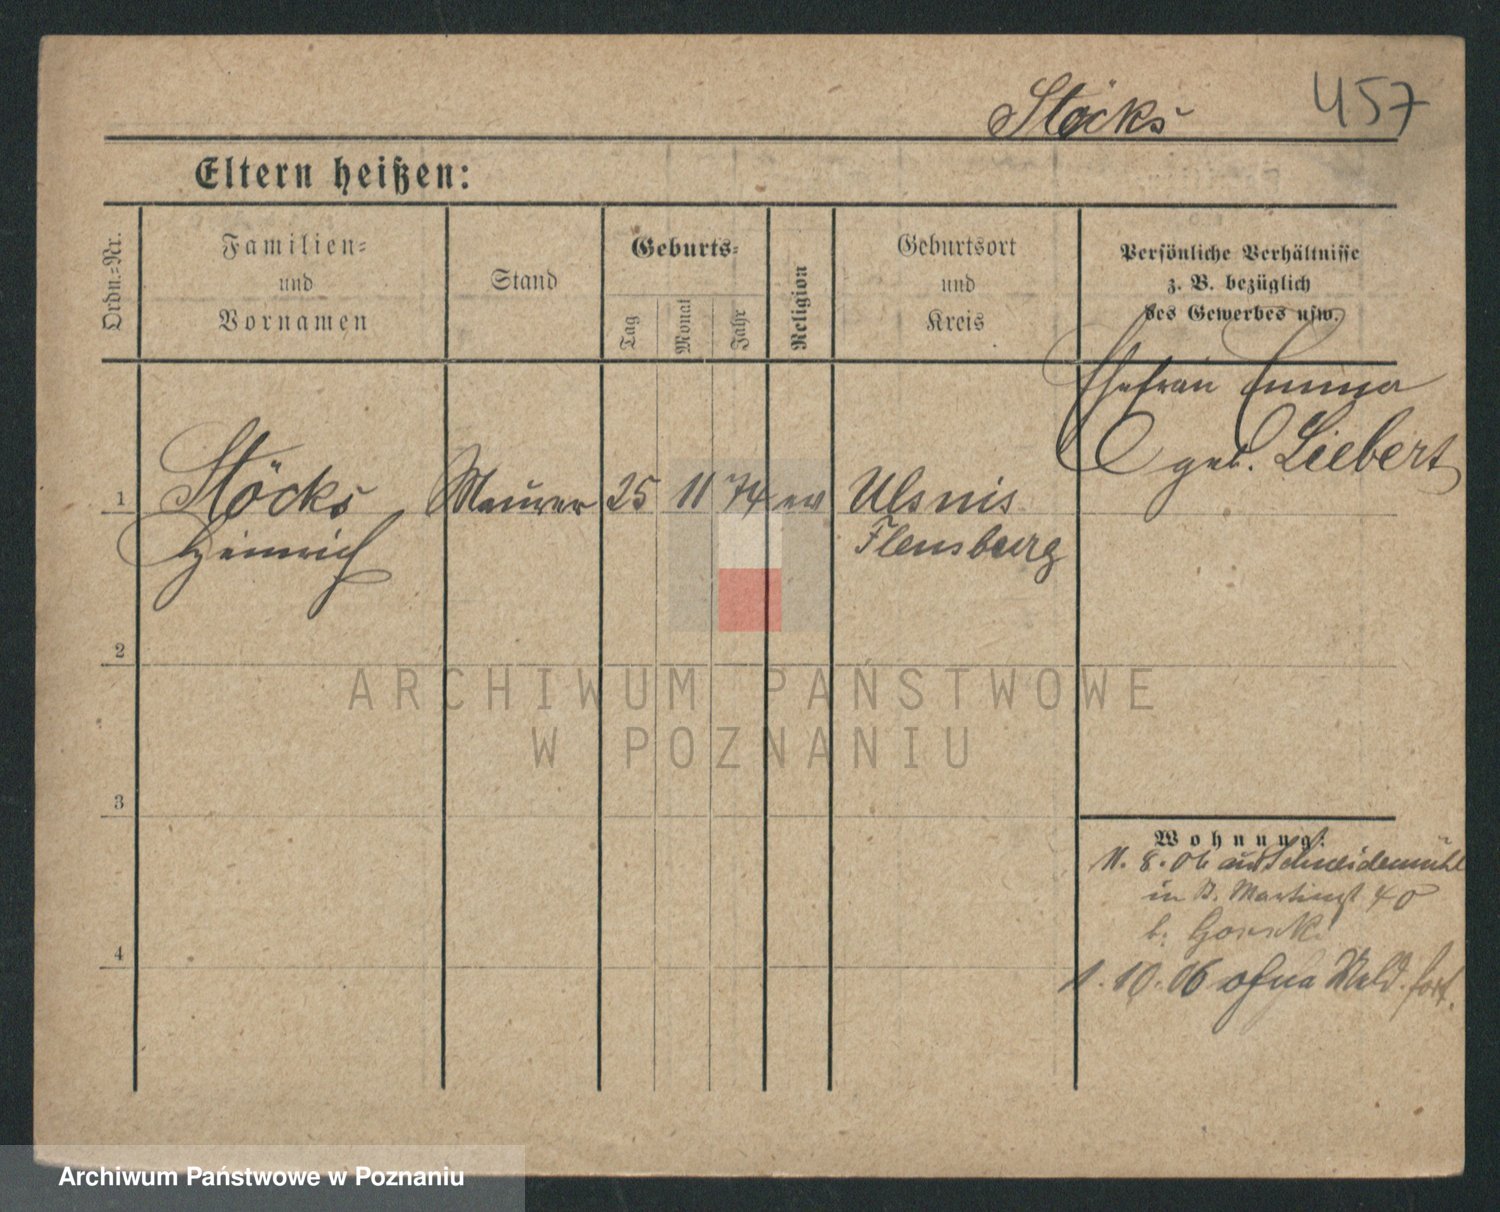 Stöcks
457
Eltern heißen:
Ordn.-Nr.
Familien-
und
Vornamen
Stand
Geburts-
Tag
Monat
Jahr
Religion
Geburtsort
und
Kreis
Persönliche Verhältnisse
z. B. bezüglich
des Gewerbes usw.
Ehefrau Emma
geb. Liebert
1 Stöcks Maurer 25 11 74 ev Ulsnis
Heinrich Flensburg
2
ARCHIWUM PAŃSTWOWE
W POZNANIU
3
Wohnung:
11. 8. 06 aus Schneidemühl
in St. Martinst 40
b.
4
1. 10. 06 ohne Meld. fort.
Archiwum Państwowe w Poznaniu